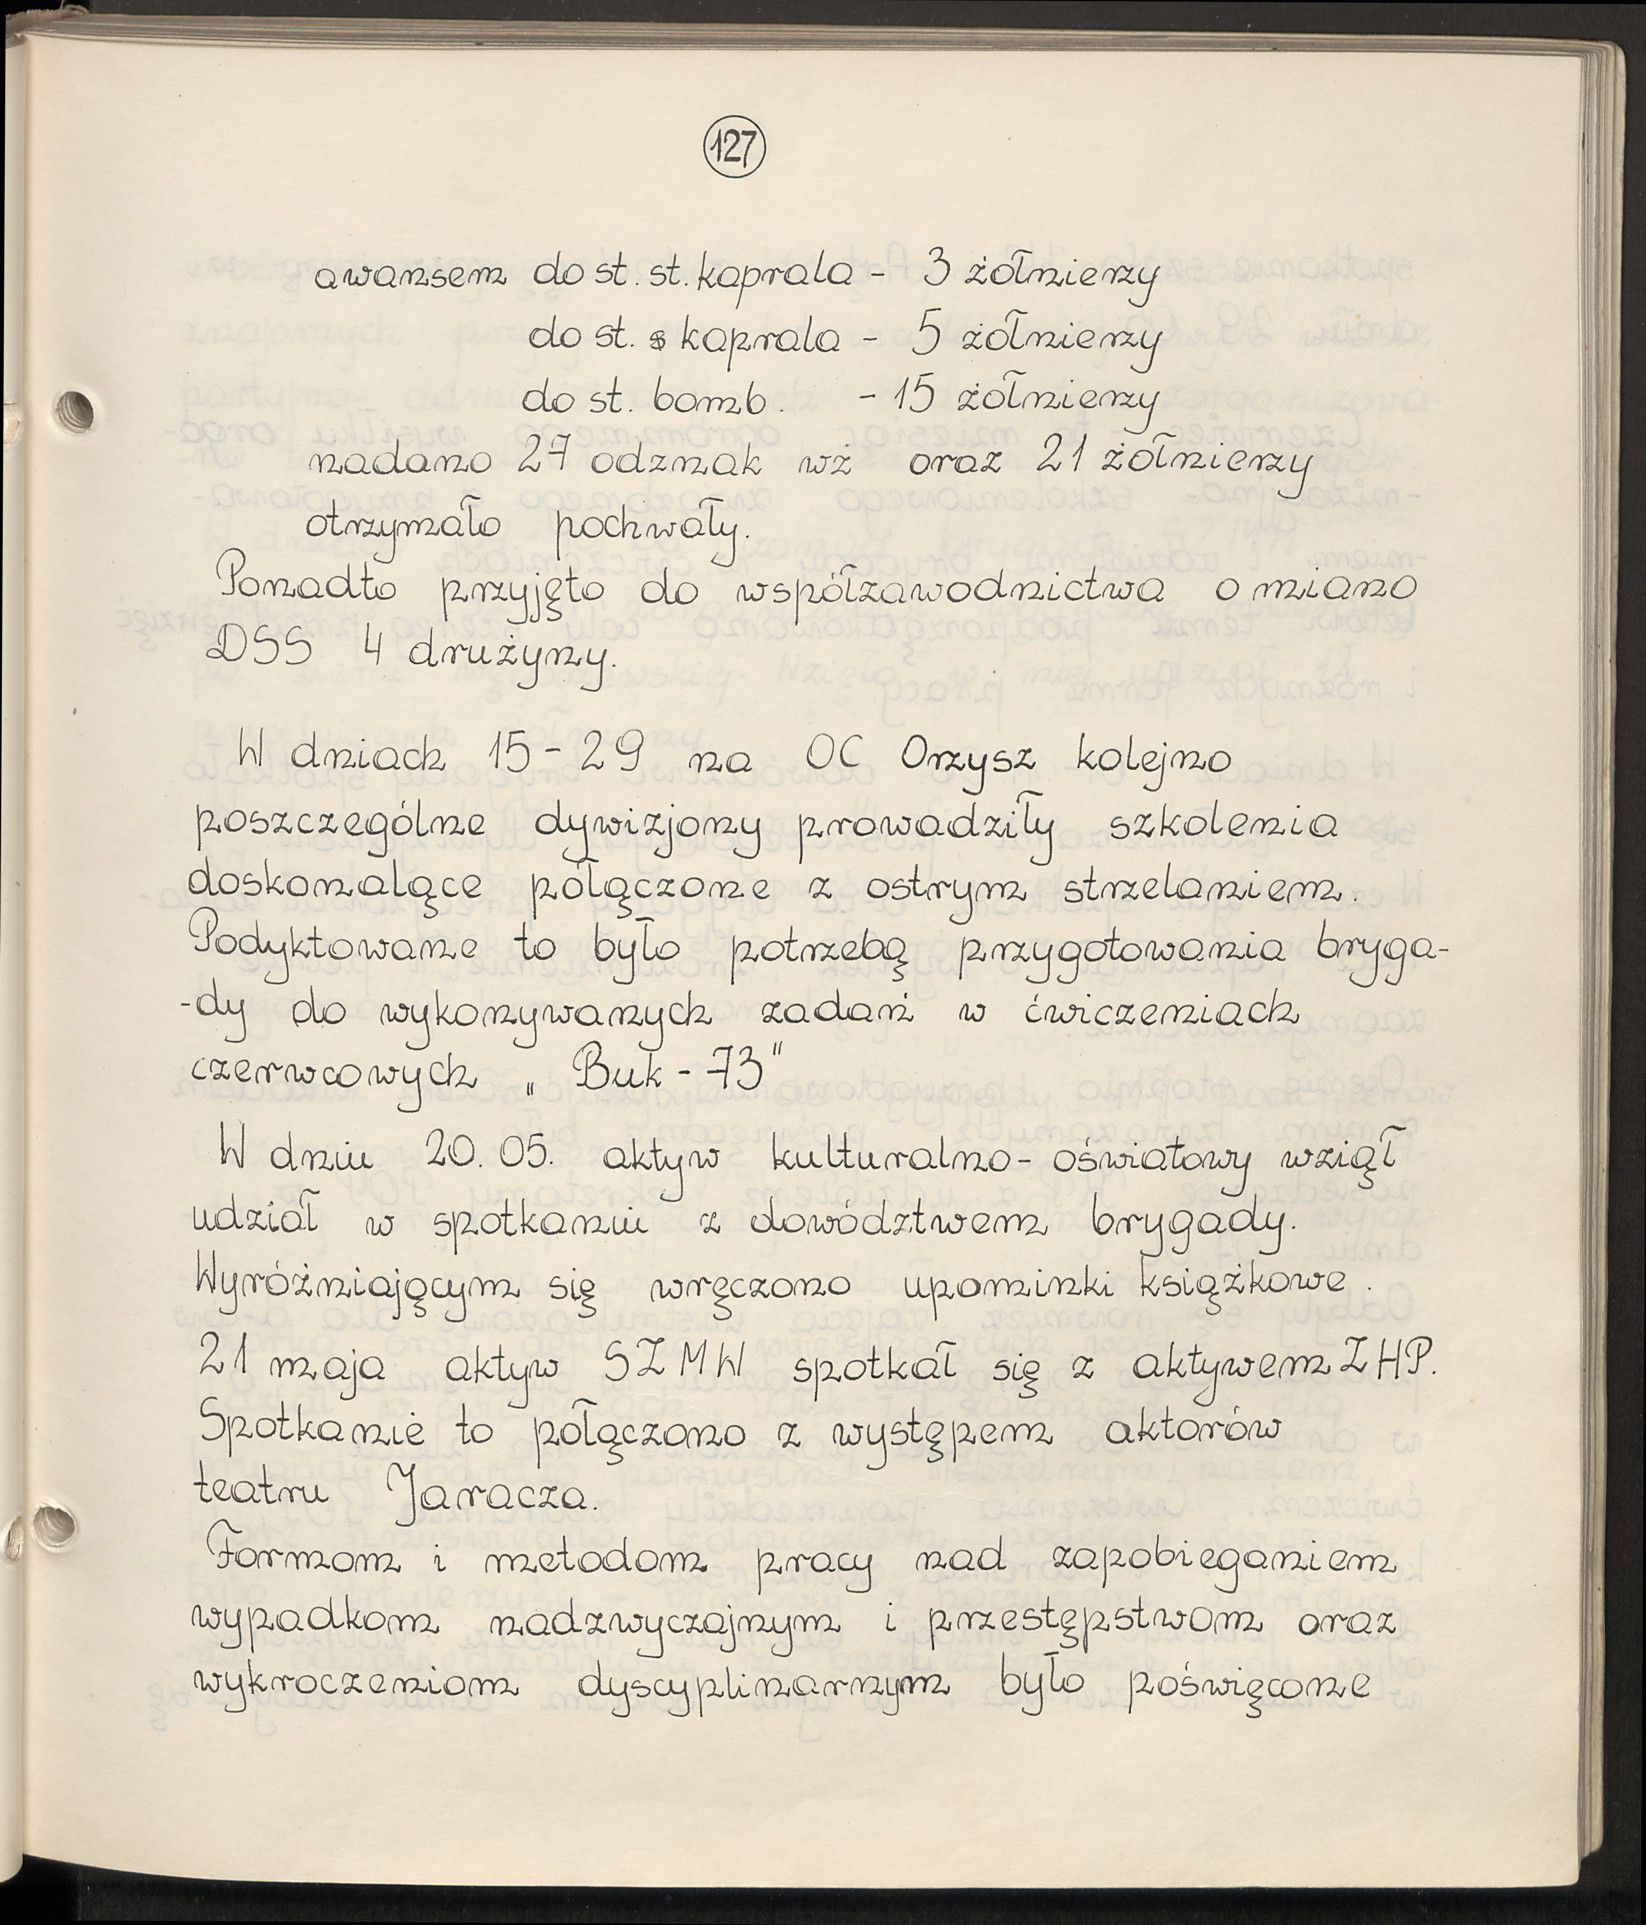 127
awansem do st. st. kaprala - 3 żołnierzy
do st. kaprala - 5 żołnierzy
do st. bomb. - 15 żołnierzy
nadano 27 odznak wż oraz 21 żołnierzy
otrzymało pochwały.
Ponadto przyjęto do współzawodnictwa o miano
DSS 4 drużyny.
W dniach 15-29 na OC Orzysz kolejno
poszczególne dywizjony prowadziły szkolenia
doskonalące połączone z ostrym strzelaniem.
Podyktowane to było potrzebą przygotowania bryga-
-dy do wykonywanych zadań w ćwiczeniach
czerwcowych „Buk-73"
W dniu 20.05. aktyw kulturalno-oświatowy wziął
udział w spotkaniu z dowództwem brygady.
Wyróżniającym się wręczono upominki książkowe.
21 maja aktyw SZMW spotkał się z aktywem ZHP.
Spotkanie to połączono z występem aktorów
teatru Jaracza.
Formom i metodom pracy nad zapobieganiem
wypadkom nadzwyczajnym i przestępstwom oraz
wykroczeniom dyscyplinarnym było poświęcone